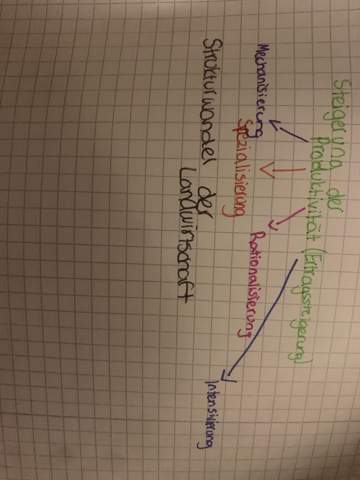 Steigerung der
Produktivität (Ertragssteigerung)
Mechanisierung
Spezialisierung
Rationalisierung
Intensivierung
Strukturwandel der
Landwirtschaft